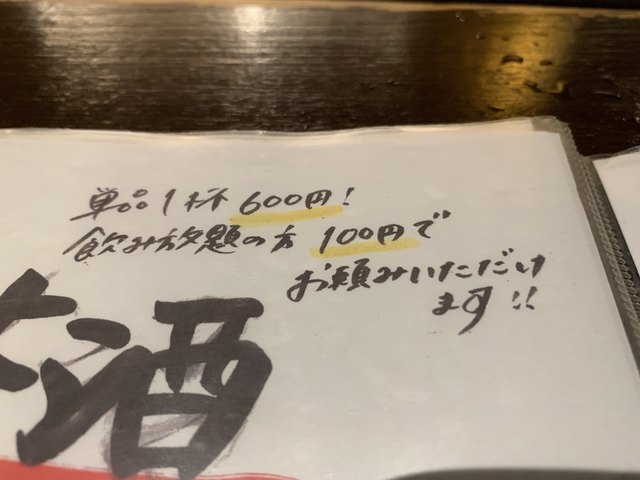 単品1杯 600円!
飲み放題の方 100円で
お願みいただけ
ます!!
酒